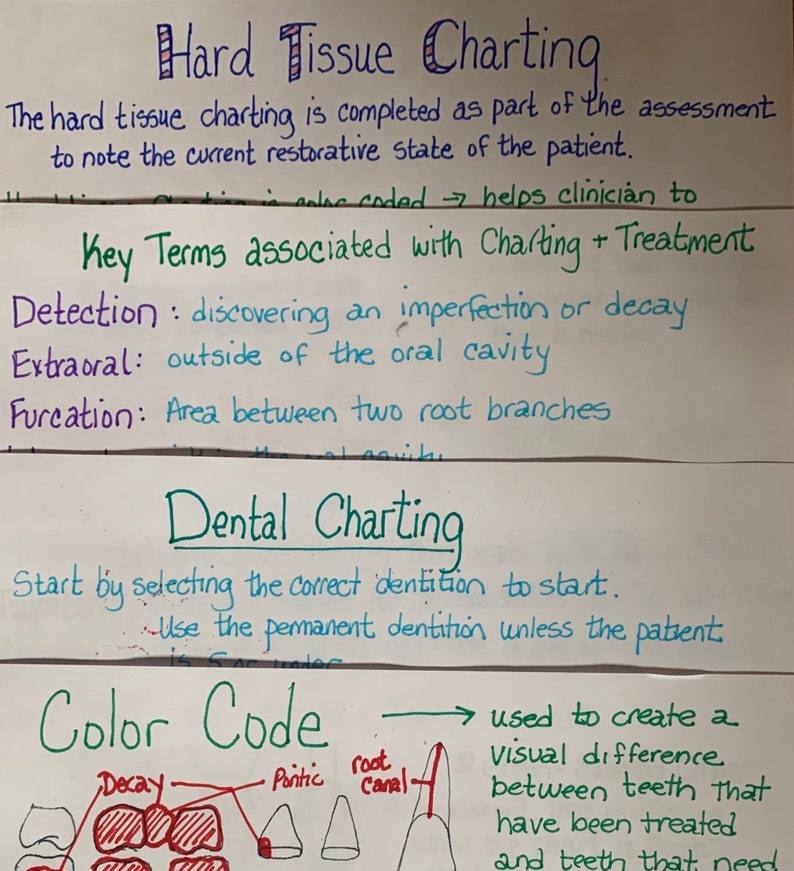 Hard Tissue Charting
The hard tissue charting is completed as part of the assessment
to note the current restorative state of the patient.
is color coded → helps clinician to
Key Terms associated with Charting + Treatment
Detection: discovering an imperfection or decay
Extraoral: outside of the oral cavity
Furcation: Area between two root branches
the oral cavity
Dental Charting
Start by selecting the correct dentition to start.
Use the permanent dentition unless the patient
is 5 or under
Color Code → used to create a
visual difference
between teeth that
have been treated
and teeth that need
Decay
Pontic
root
canal